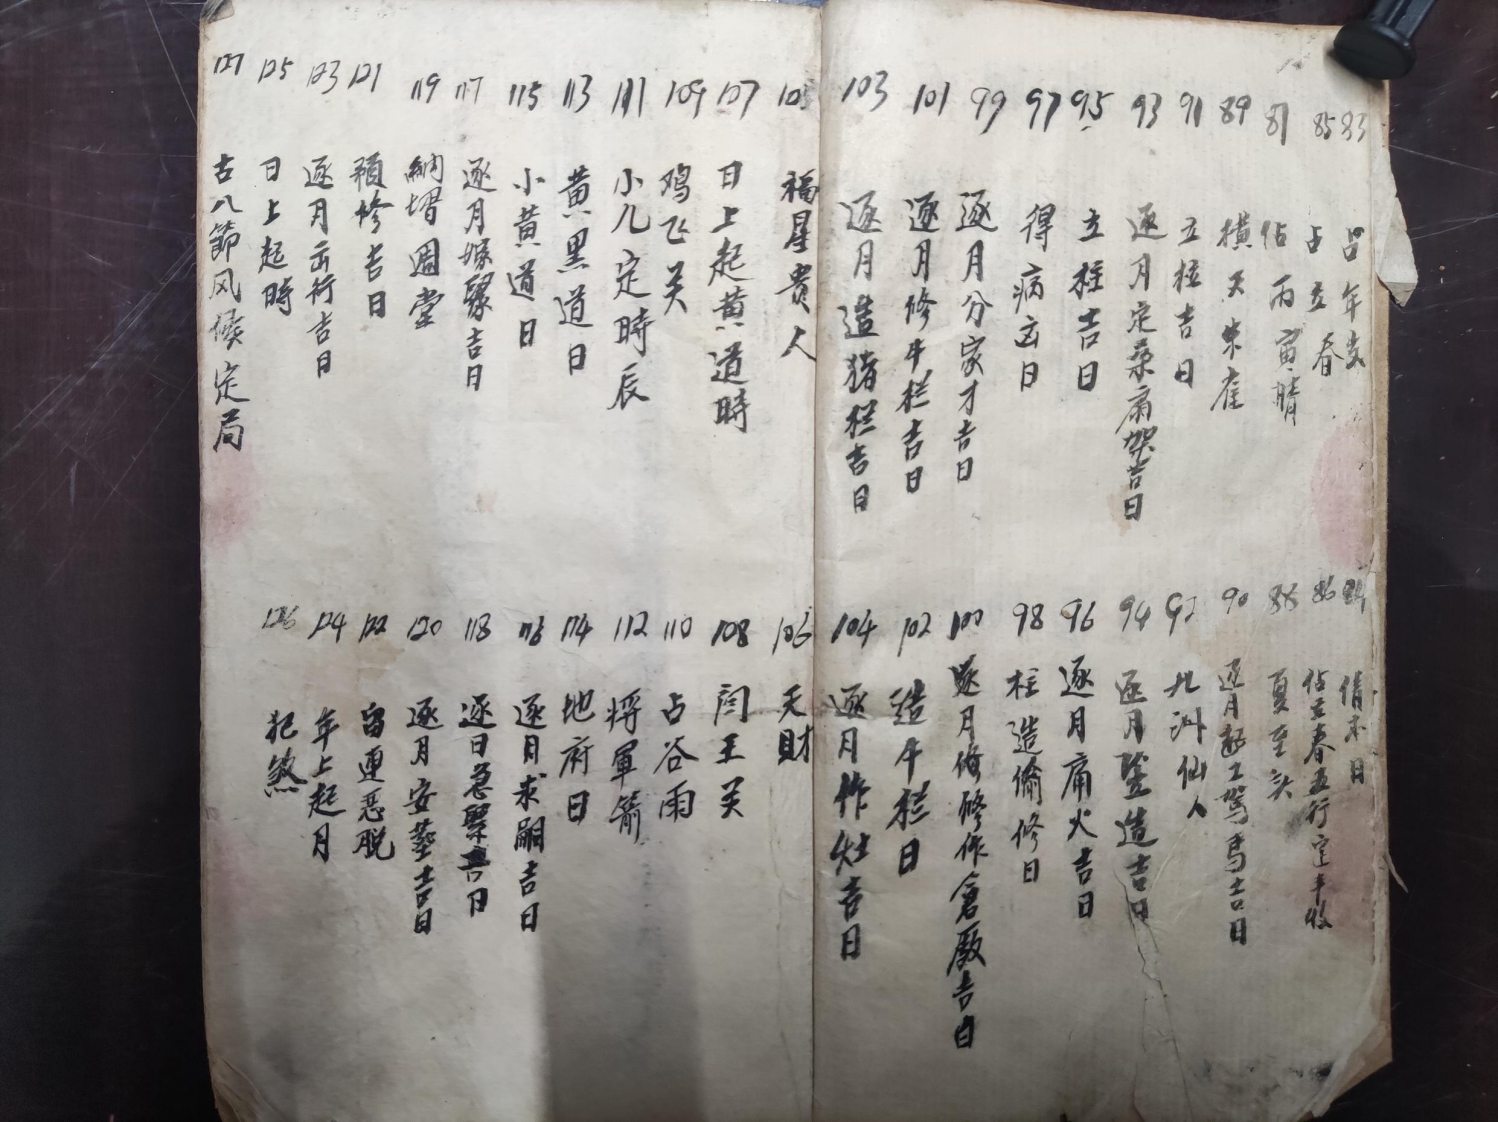 83 占年岁
84 情未日
85 占立春
86 佔立春五行定丰收
87 佔丙寅晴
88 夏至头
89 横天朱雀
90 逐月起工驾馬吉日
91 立柱吉日
92 九洲仙人
93 逐月定桑扇架吉日
94 逐月竪造吉日
95 立柱吉日
96 逐月痛火吉日
97 得病凶日
98 柱造偷修日
99 逐月分家才吉日
100 逐月修作倉廒吉日
101 逐月修牛栏吉日
102 造牛栏日
103 逐月造猪栏吉日
104 逐月作灶吉日
105 福星贵人
106 天财
107 日上起黄道時
108 闫王关
109 鸡飞关
110 占谷雨
111 小儿定時辰
112 将軍箭
113 黄黑道日
114 地府日
115 小黄道日
116 逐月求嗣吉日
117 逐月嫁娶吉日
118 逐日急
119 納壻週堂
120 逐月安葬吉日
121 預修吉日
122 留連惡脱
123 逐月出行吉日
124 年上起月
125 日上起時
126 犯煞
127 古八節风候定局